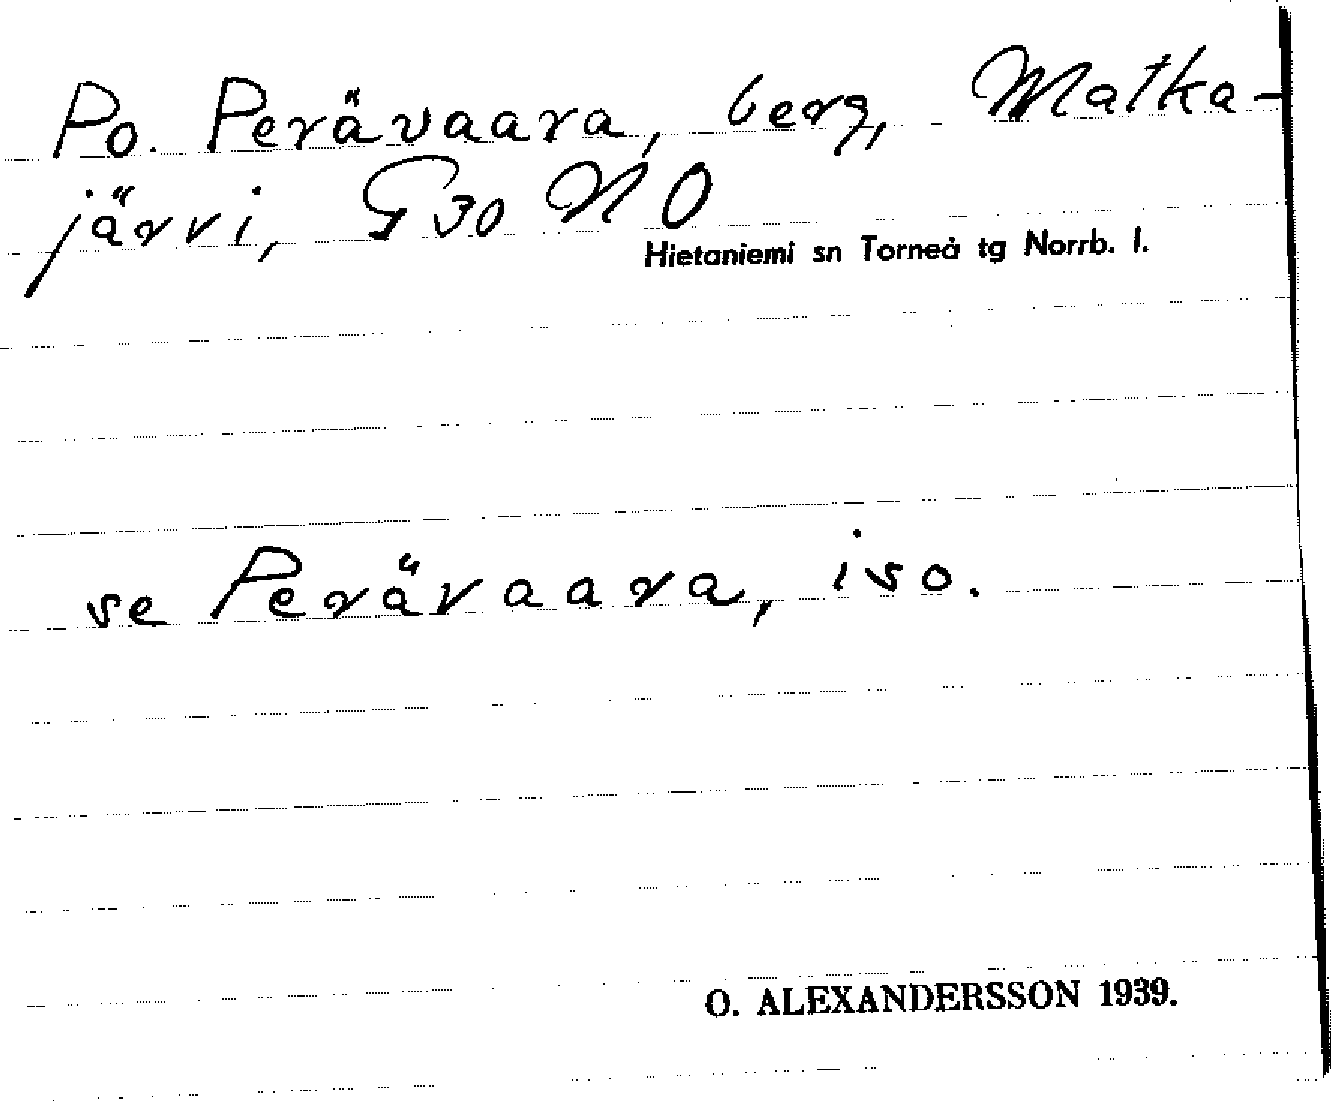 Po. Perävaara, berg, Matka-
järvi, G 30 NO
Hietaniemi sn Torneå tg Norrb. l.
se Perävaara, iso.
O. ALEXANDERSSON 1939.